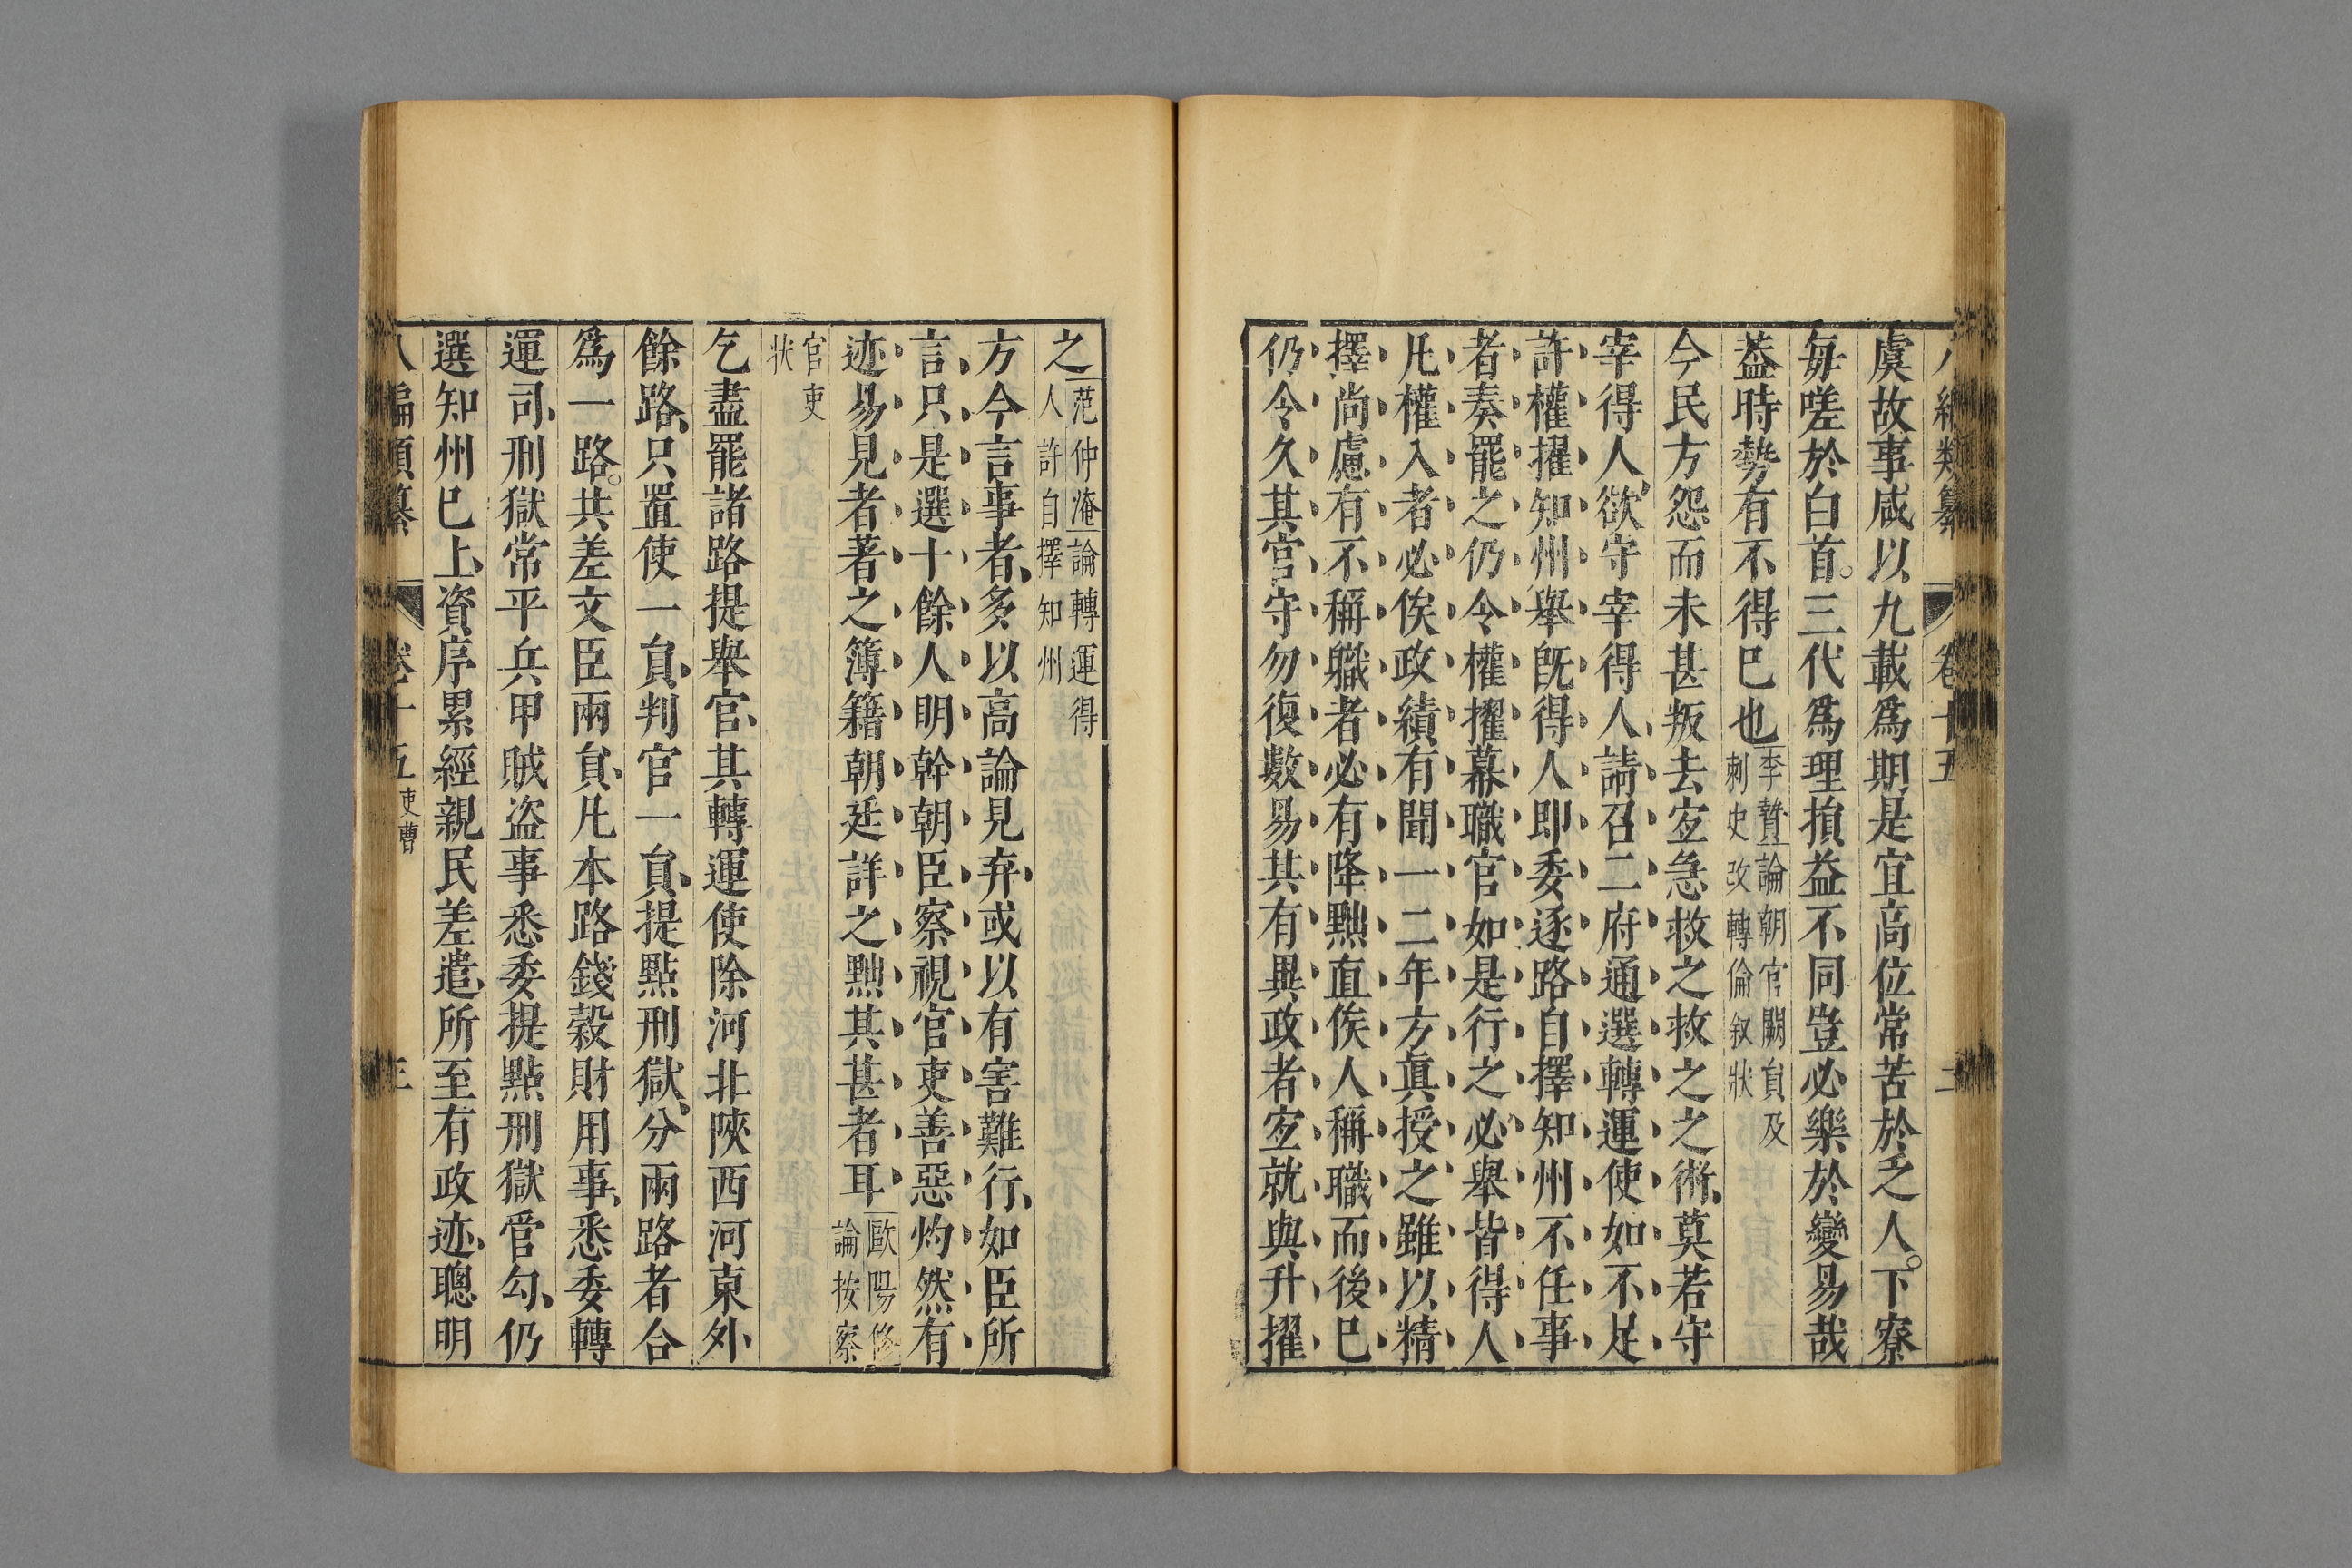 八編類纂 卷十五 二
虞故事咸以九載爲期是宜高位常苦於乏人。下寮
每嗟於白首。三代爲理損益不同豈必樂於變易哉
葢時勢有不得巳也李贄論朝官闕員及
刺史改轉倫叙狀
今民方怨而未甚叛去宐急救之救之之術、莫若守
宰得人、欲守宰得人、請召二府通選轉運使如不足
許權擢知州舉旣得人即委逐路自擇知州不任事
者奏罷之仍令權擢幕職官如是行之必舉皆得人
凡權入者必俟政績有聞一二年方眞授之雖以精
擇尚慮有不稱職者必有降黜直俟人稱職而後巳
仍令久其官守勿復數易其有異政者宐就與升擢
之范仲淹論轉運得
人許自擇知州
方今言事者、多以高論見弃、或以有害難行、如臣所
言、只是選十餘人明幹朝臣察視官吏善惡灼然有
迹易見者著之簿籍朝廷詳之黜其甚者耳歐陽修
論按察
官吏
狀
乞盡罷諸路提舉官、其轉運使除河北陝西河東外
餘路、只置使一員、判官一員、提點刑獄、分兩路者合
爲一路。共差文臣兩員、凡本路錢糓財用事、悉委轉
運司、刑獄常平兵甲賊盗事悉委提點刑獄管勾、仍
選知州巳上、資序累經親民差遣、所至有政迹、聰明
八編類纂 卷十五 吏曹 三